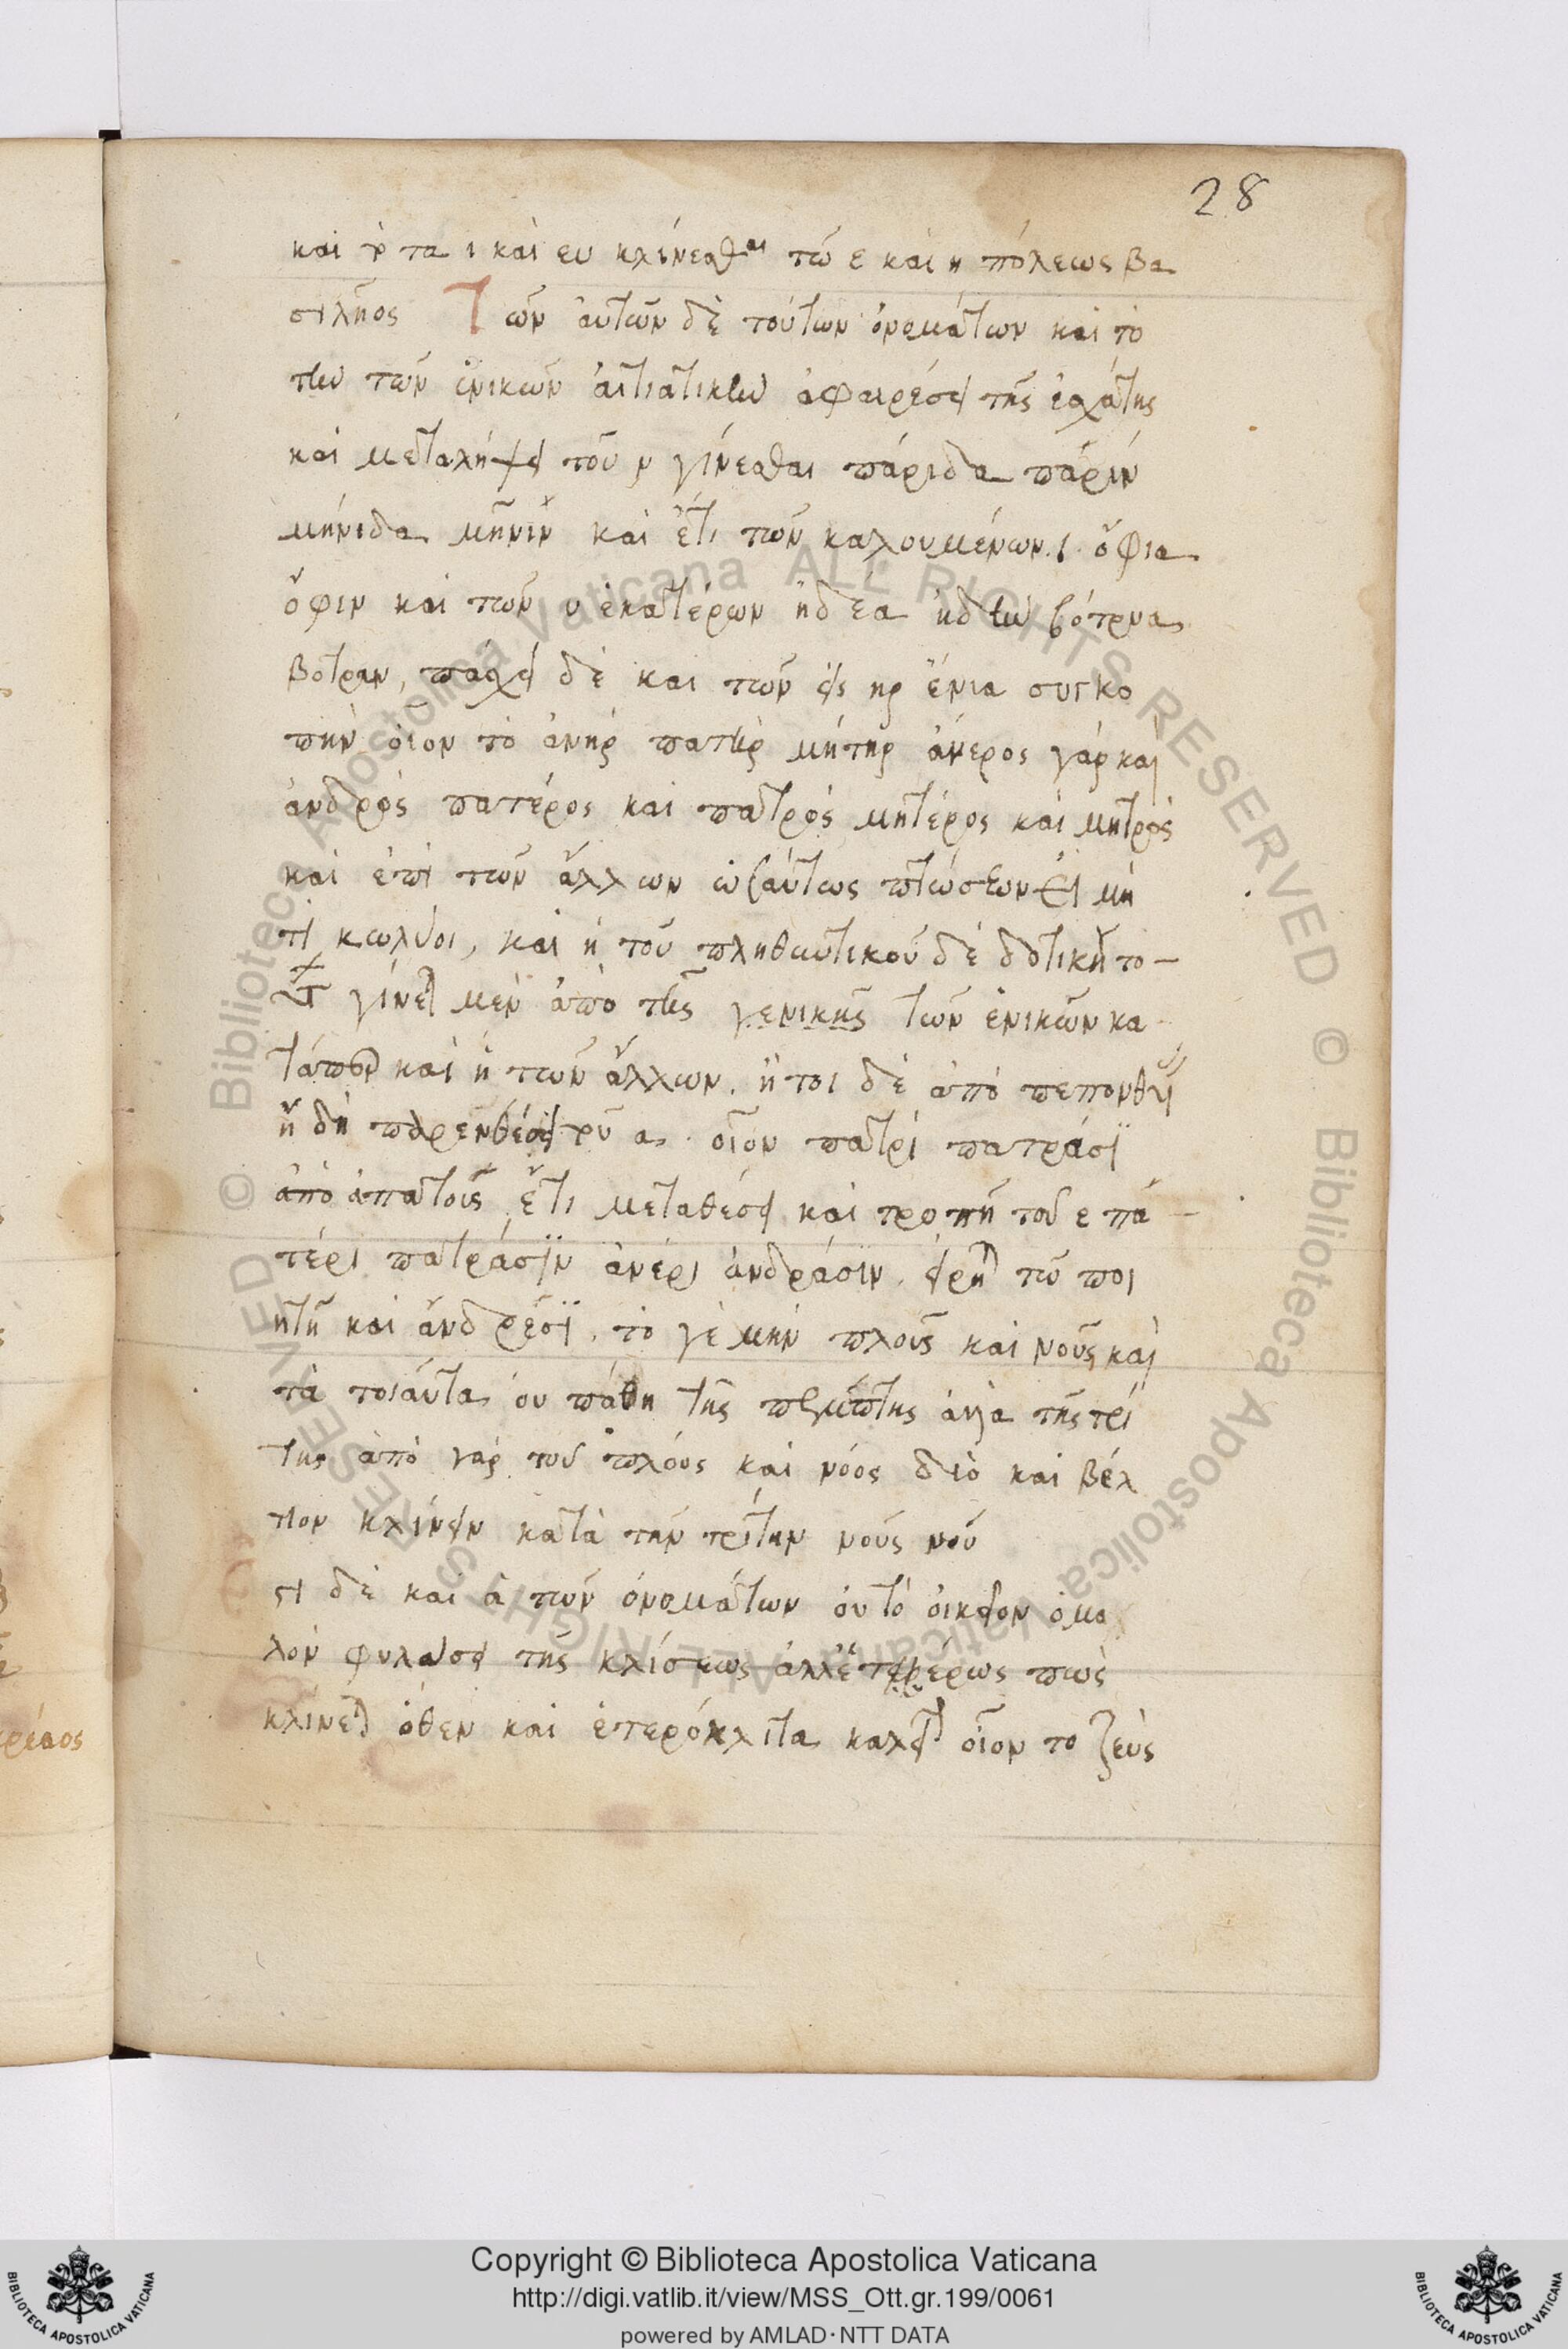 28
καὶ τὰ ι καὶ ευ κλίνεσθαι τῶ ε καὶ η πόλεως βα
σιλῆος Τῶν αὐτῶν δὲ τούτων ὀνομάτων καὶ τὸ
τὴν τῶν ἑνικῶν ἀιτιατικὴν ἀφαιρέσει τῆς ἐσχάτης
καὶ μεταλήψει τοῦ ν γίνεσθαι πάριδα πάριν
μήνιδα μῆνιν καὶ ἔτι τῶν καλουμένων ι ὄφια
ὄφιν καὶ τῶν υ ἑκατέρων ἡδέα ἡδὺν βότρυα
βότρυν, πάσχει δὲ καὶ τῶν εἰς ηρ ἔνια συγκο
πὴν οἷον τὸ ἀνὴρ πατὴρ μήτηρ ἀνέρος γὰρ καὶ
ἀνδρὸς πατέρος καὶ πατρὸς μητέρος καὶ μητρὸς
καὶ ἐπὶ τῶν ἄλλων ὡσαύτως πτώσεων εἰ μή
τι κωλύοι, καὶ ἡ τοῦ πληθυντικοῦ δὲ δοτικὴ το
γίνεται μὲν ἀπὸ τῆς γενικῆς τῶν ἑνικῶν κα
καὶ ἡ τῶν ἄλλων. ἤτοι δὲ ἀπὸ
ἤδη παρενθέσει τοῦ α. οἷον πατρὶ πατράσι
ἀπὸ ἀπατοῦς ἔτι μεταθέσει καὶ τροπῆ τοῦ ε πα
τέρι πατράσιν ἀνέρι ἀνδράσιν. τῶ ποι
ητῆ καὶ ἄνδρεσι. τό γε μὴν πλοῦς καὶ νοῦς καὶ
τὰ τοιαῦτα οὐ πάθη τῆς πέμπτης ἀλλὰ τῆς τρί
της ἀπὸ γὰρ τοῦ πλόος καὶ νόος διὸ καὶ βέλ
τιον κλίνειν κατὰ τὴν τρίτην νοῦς νοῦ
στι δὲ καὶ ἃ τῶν ὀνομάτων οὐ τὸ οἰκεῖον ὁμα
λὸν φυλάσσει τῆς κλίσεως ἀλλ' ἑτέρως πως
κλίνεται ὅθεν καὶ ἑτερόκλιτα καλεῖται οἷον τὸ ζεὺς
κρέαος
Copyright © Biblioteca Apostolica Vaticana
http://digi.vatlib.it/view/MSS_Ott.gr.199/0061
powered by AMLAD·NTT DATA